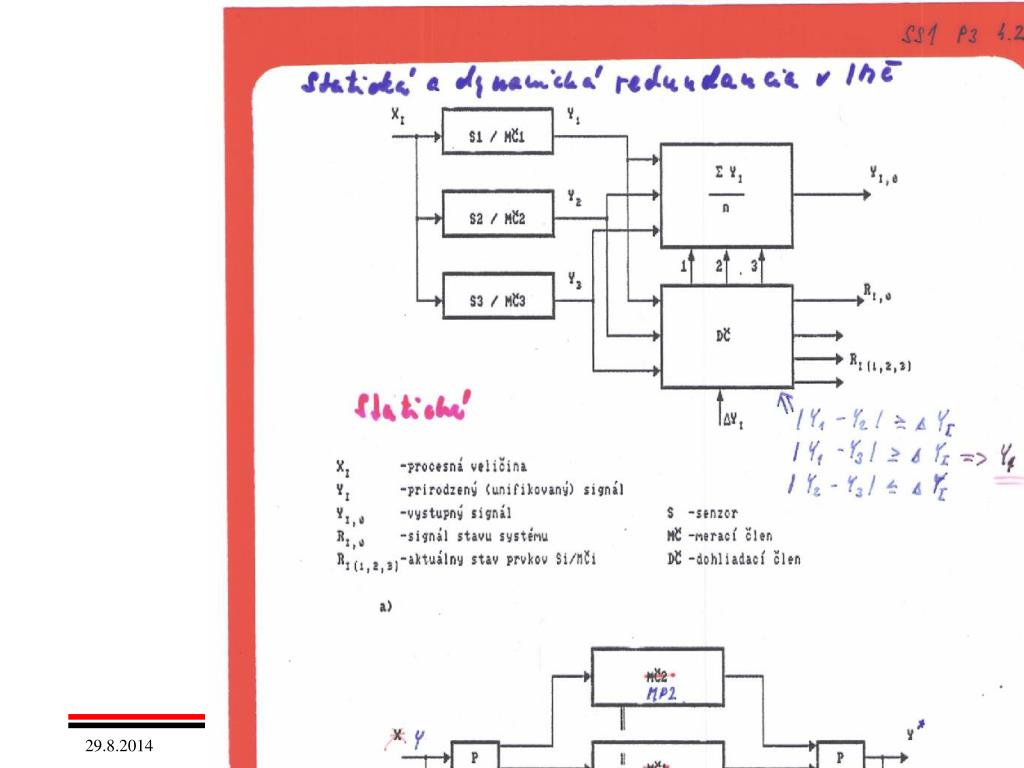 SS1 P3 4.2
Statická a dynamická redundancia v
X_I
Y_1
S1 / MČ1
Σ Y_1
n
Y_I,0
Y_2
S2 / MČ2
1 2 3
Y_3
S3 / MČ3
R_I,0
DČ
R_I(1,2,3)
Statická
ΔY_I
|Y_1 - Y_2| ≥ Δ Y_I
|Y_1 - Y_3| ≥ Δ Y_I =>
|Y_2 - Y_3| ≤ Δ Y_I
X_I -procesná veličina
Y_I -prirodzený (unifikovaný) signál
Y_I,0 -vystupný signál
R_I,0 -signál stavu systému
R_I(1,2,3) -aktuálny stav prvkov Si/MČi
S -senzor
MČ -merací člen
DČ -dohliadací člen
a)
MČ2
MP2
X Y
Y*
P
P
29.8.2014